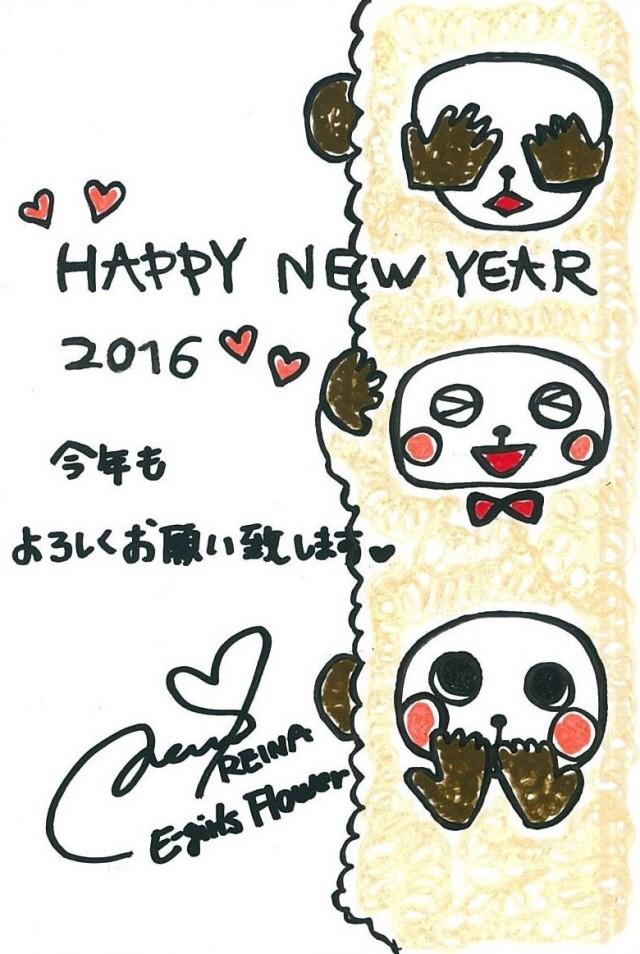 HAPPY NEW YEAR
2016
今年も
よろしくお願い致します
REINA
E-girls Flower